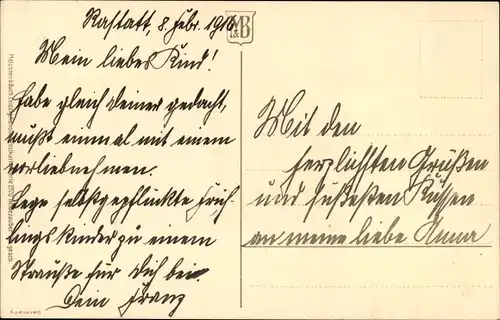 Rastatt, 8. Febr. 1916
M&B
Mein liebes Kind!
habe gleich deiner gedacht,
mußt einmal mit einem
vorliebnehmen.
Lege selbstgepflückte Früh-
lingskinder zu einem
Strauße für Dich bei.
Dein Franz
Mit den
herzlichsten Grüßen
und süßesten Küssen
an meine liebe Anna
Germany